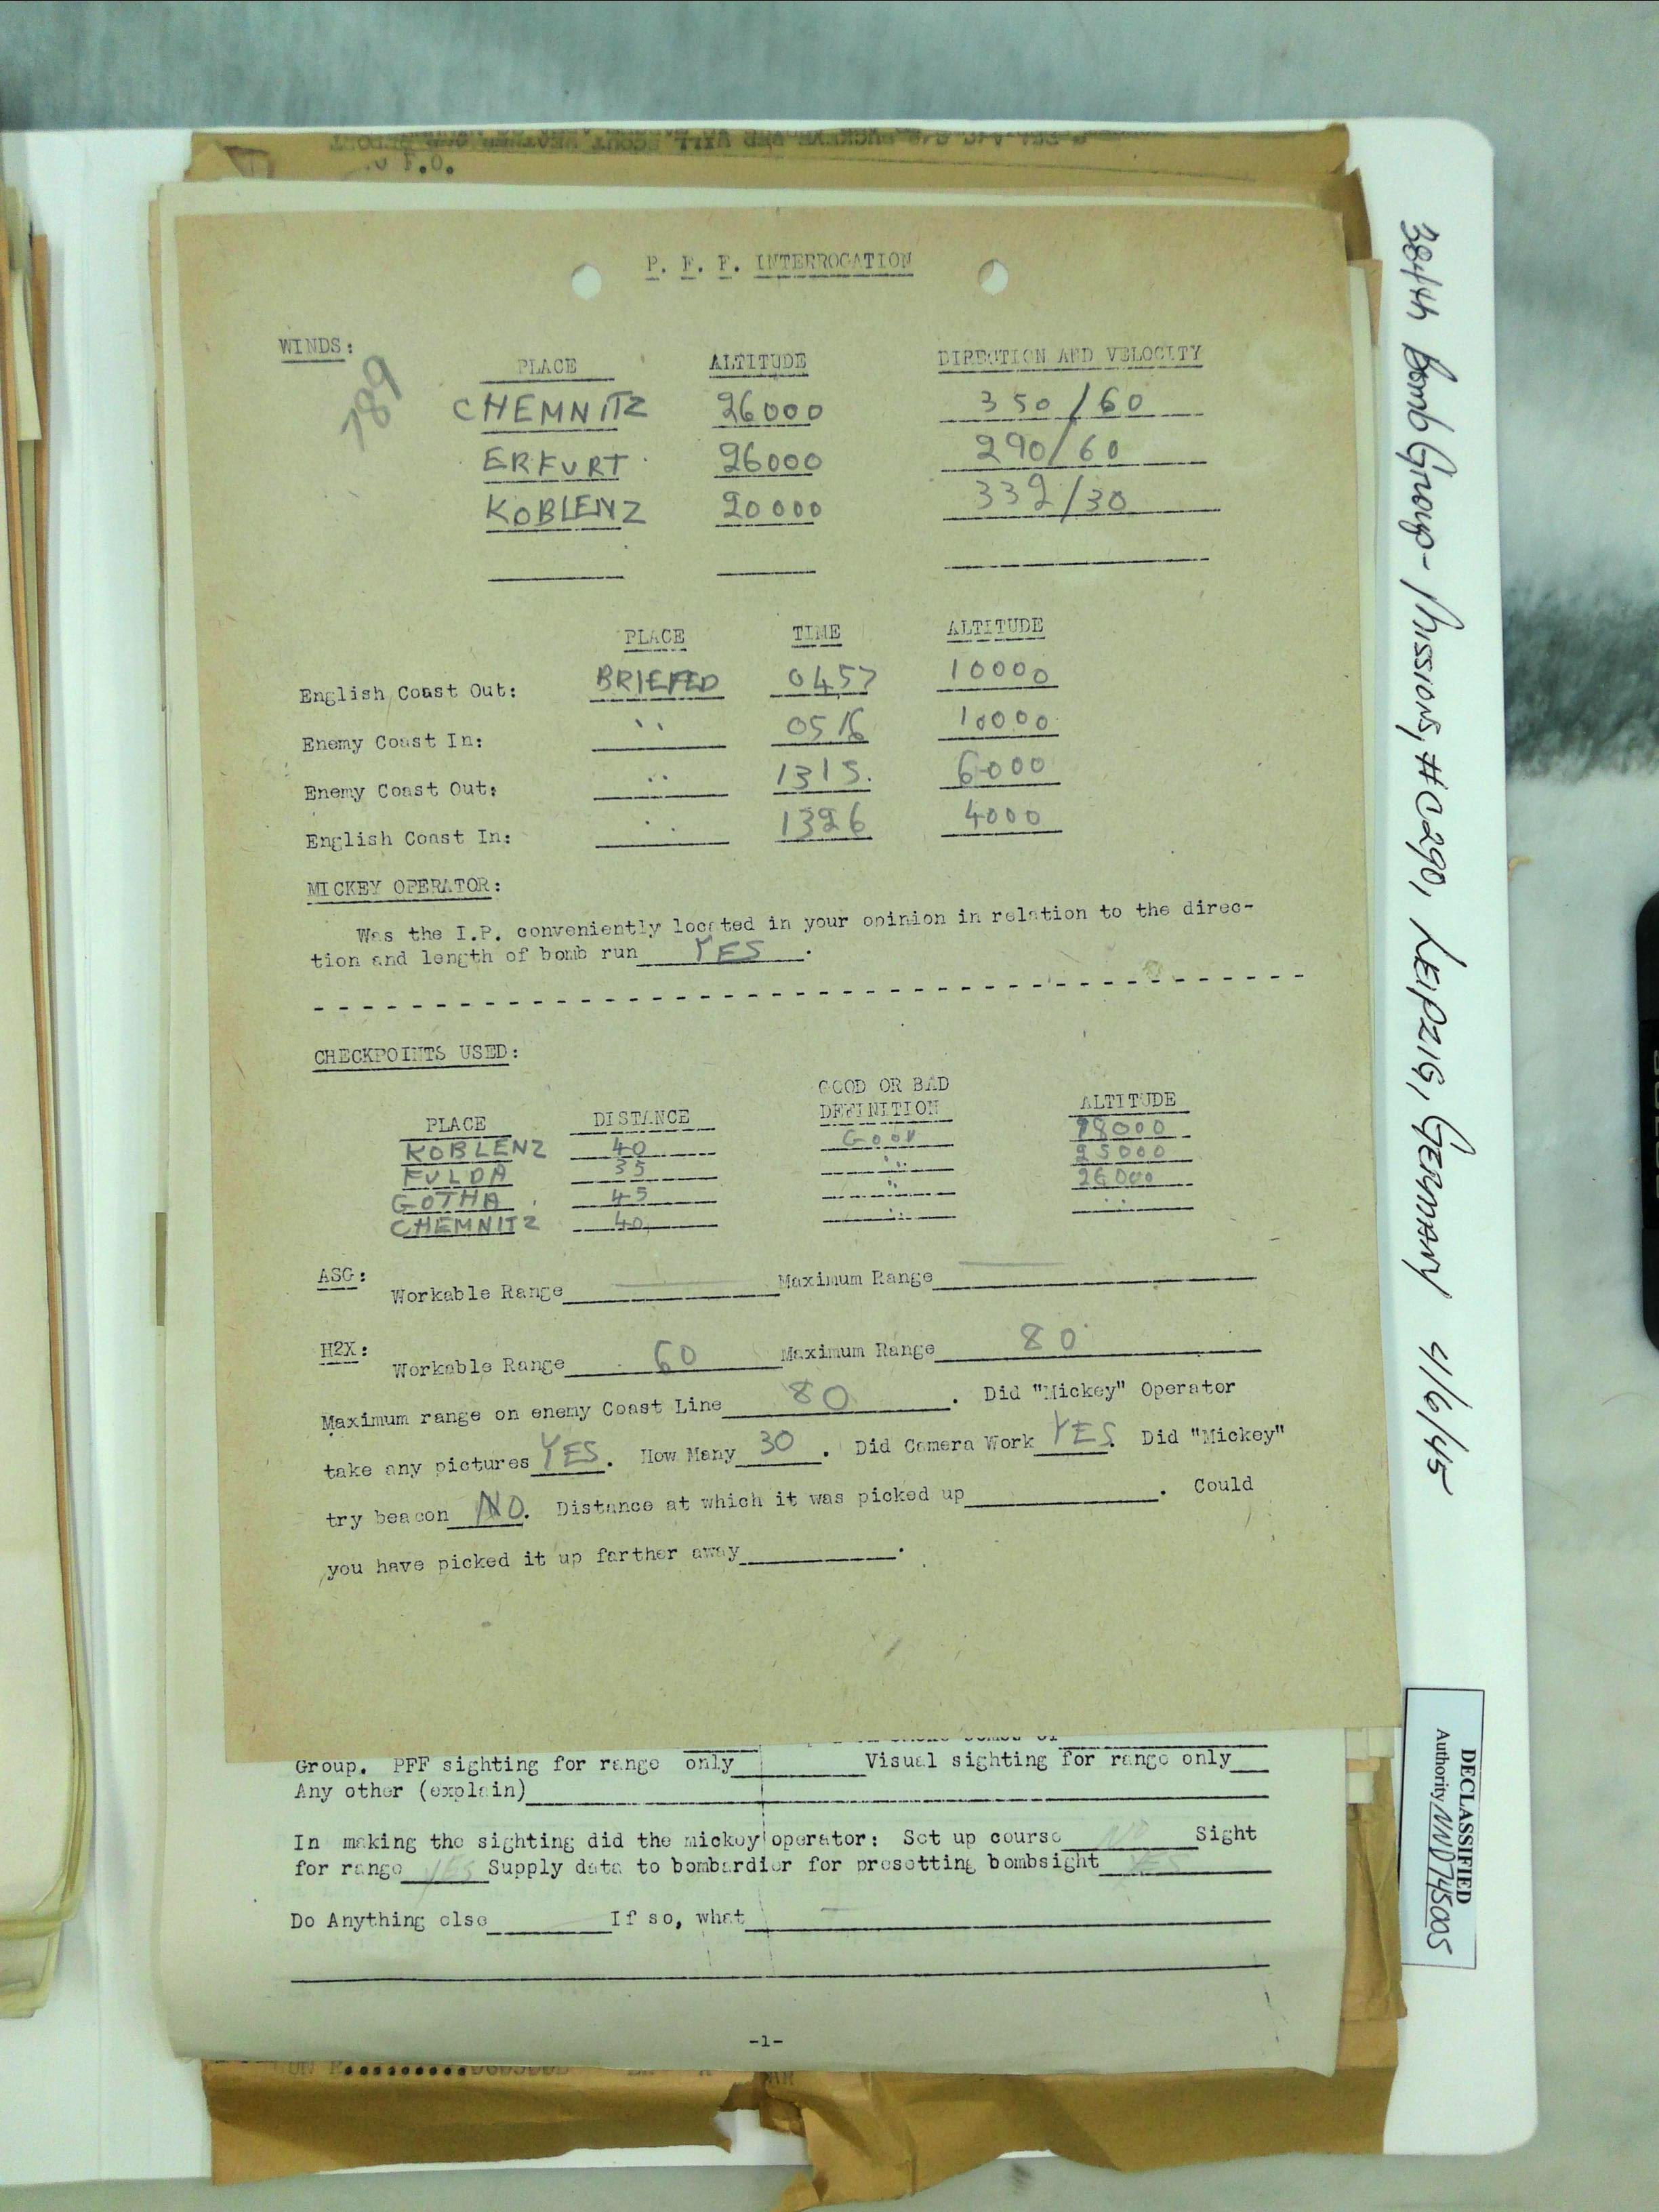 P. F. F. INTERROGATION
WINDS:
789
PLACE ALTITUDE DIRECTION AND VELOCITY
CHEMNITZ 26000 350/60
ERFURT 26000 290/60
KOBLENZ 20000 332/30
PLACE TIME ALTITUDE
English Coast Out: BRIEFED 0457 10000
Enemy Coast In: " 0516 10000
Enemy Coast Out: " 1315. 6000
English Coast In: " 1326 4000
MICKEY OPERATOR:
Was the I.P. conveniently located in your opinion in relation to the direc-
tion and length of bomb run YES.
CHECKPOINTS USED:
GOOD OR BAD
PLACE DISTANCE DEFINITION ALTITUDE
KOBLENZ 40 GOOD 18000
FULDA 35 " 25000
GOTHA 45 " 26000
CHEMNITZ 40 " "
ASG: Workable Range Maximum Range
H2X: Workable Range 60 Maximum Range 80
Maximum range on enemy Coast Line 80. Did "Mickey" Operator
take any pictures YES. How Many 30. Did Camera Work YES. Did "Mickey"
try beacon NO. Distance at which it was picked up. Could
you have picked it up farther away.
Group. PFF sighting for range only Visual sighting for range only
Any other (explain)
In making the sighting did the mickey operator: Set up course NO Sight
for range YES Supply data to bombardier for presetting bombsight YES
Do Anything else If so, what
-1-
384th Bomb Group - Missions, #C290, LEIPZIG, GERMANY 4/6/45
DECLASSIFIED
Authority NND 745005